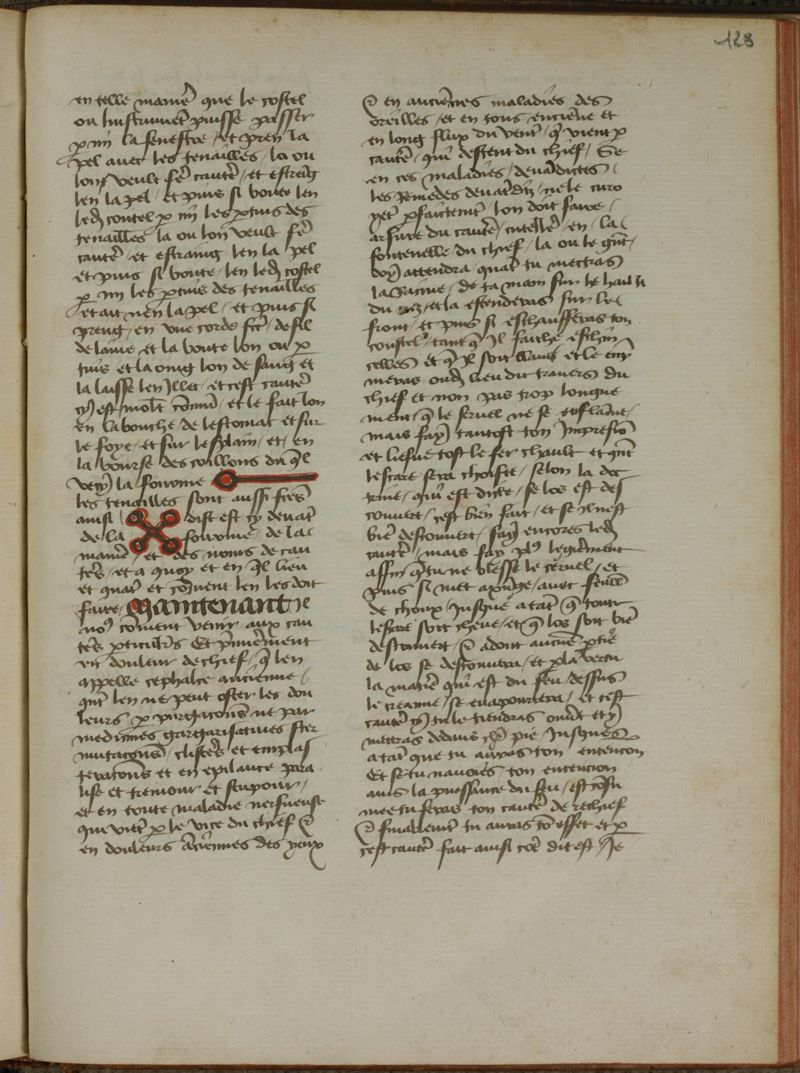 128
en telle manier que le costel
ou linstrument puisse passer
p mi la fenestre et pren la
pel avec les tenailles la ou
lon veult fer cauter et estraig
len la pel et puis si boute len
led coutel p mi les ptuis des
tenailles la ou lon veult fer
cauter et estraing len la pel
et puis si boute len led costel
p mi les ptuis des tenailles
et ait nen la pel et puis si
preng en une corde de fil
de laine et la boute lon ou p
tuis et la oing lon de saing et
la laisse len illec et cest cauter
est molt comun et le fait lon
en la bouche de lestomac et sur
le foye et sur lesplain et en
la bourse des coullons du ql
la fourme
les tenailles sont aussi
ainsi dist est cy devat
de la fourme de la
manier et des noms de cau
ters et a quoy et en ql lieu
et quat et coment len les doit
faire Maintenant il
no coment venir aux cau
ters pticulers Et primerment
en douleur de chief q len
appelle cephalee ancienne
qnt len ne peut oster les dou
leurs p purgacons ne par
medicines gargarisatives ster
nutacons clisters et emplas
teracons et en epilance para
lise et tremour et stupour
et en toute maladie nerfueuse
que vient p le vice du chief
en douleurs anciennes des yeux
en anciennes maladies des
oreilles et en tous encienne et
en long flux du vent q vient p
cauter qui destent du chief Se
en ces maladies devandites
les remedes devat ditz ne le curo
yet pfaitemt lon doit faire
arsure du cauter cuteller en la
fontenelle du chief la ou le gnt
doy attendra quat tu mettras
la racine de ta main sur le hault
du nez et la estenderas sur le
front et puis si eschaufferas ton
coustel tant q il fache estin
celles et q il soit blanc et le em
meras ou lieu du travers du
chief et non pas trop longue
ment q le servel ne se enflame
mais fay tantost ton impression
et lieve tost le fer chault et qnt
lescare sera choisie selon la doc
trine qui est dicte se los est des
couvert cest bien fait et se il nest
bien descouvert fay encores led
cauter mais fay plus legierment
affin q tu ne blesse le cervel et
puis si met apurge avec feulle
de choux jusque atat q toute
lescare soit cheue et q los soit bie
descouvert adont aucune
de los se descouvera et p la vertu
la matier qui est du feu dessus
le creanne se evapourera et cest
cauter tu le tiendras ouvert et
mettras dedans jusques
atat que tu auras ton entencon
Et se tu navoies ton entencion
avec la puissance du feu
mee tu feras ton cauter de rechief
finalement tu auras effet et p
cest cauter fait ainsi coe dit est Je